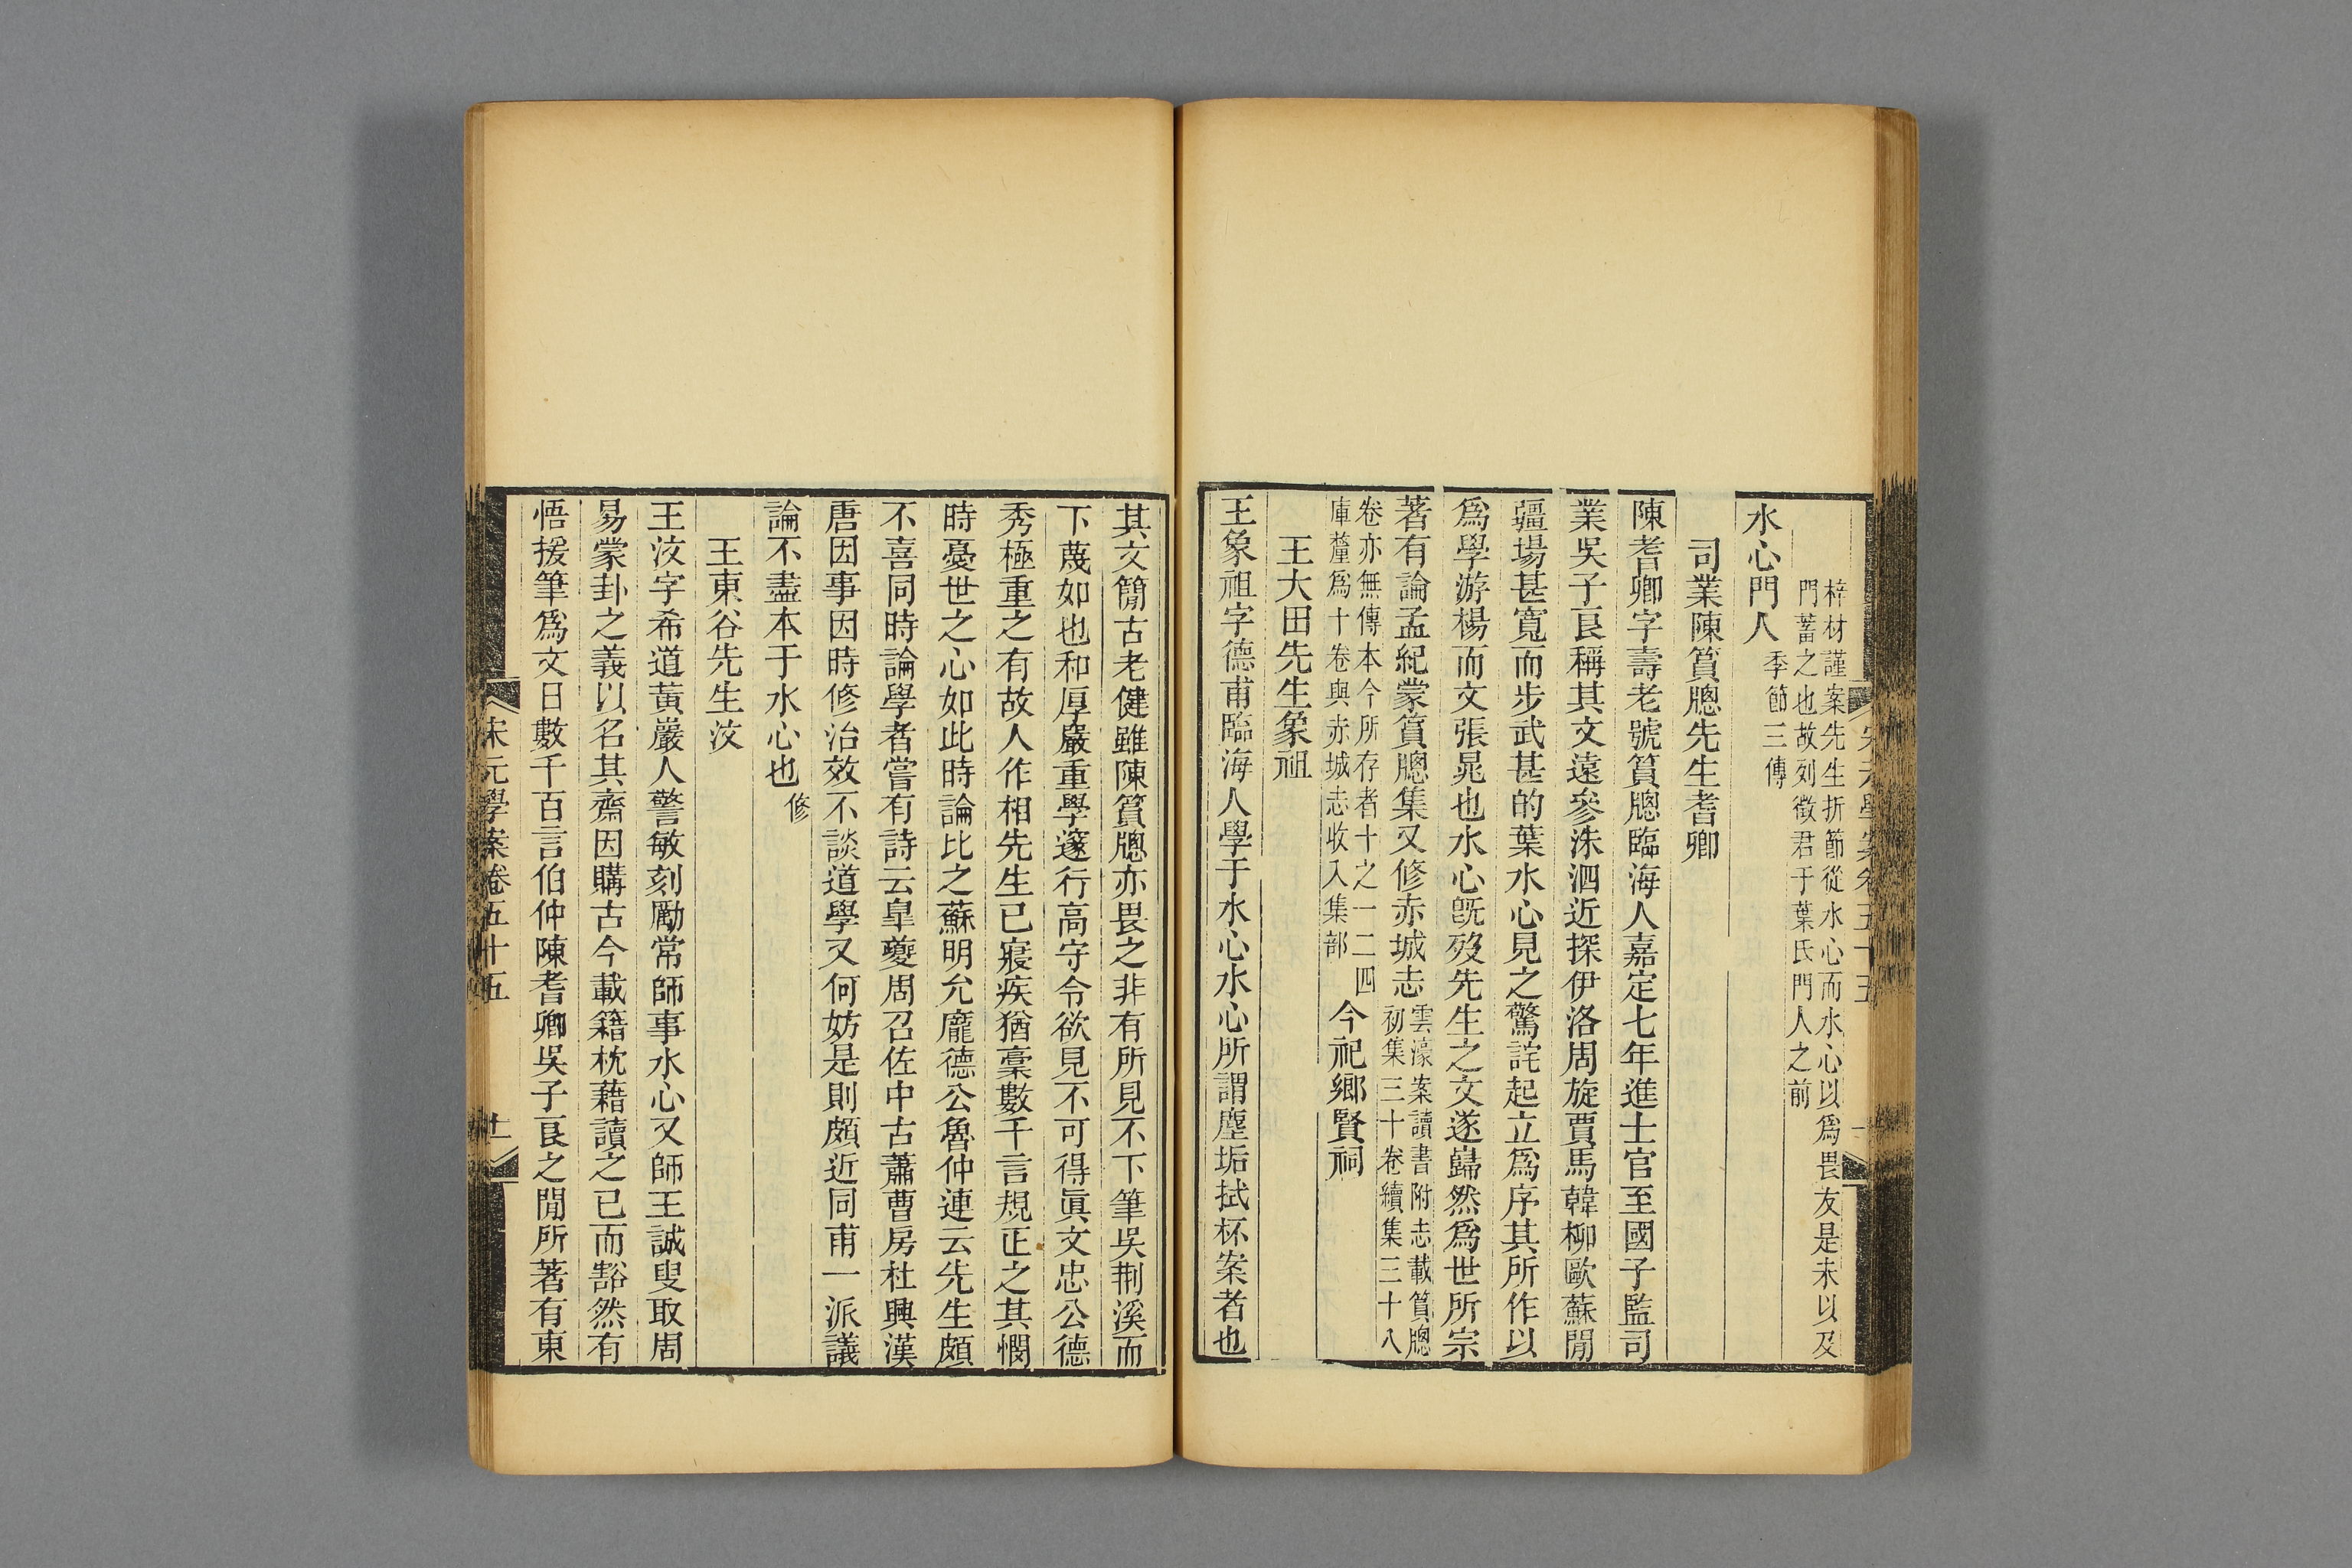 梓材謹案先生折節從水心而水心以爲畏友是未以及
門蓄之也故列徵君于葉氏門人之前
水心門人季節三傳
司業陳篔牕先生耆卿
陳耆卿字壽老號篔牕臨海人嘉定七年進士官至國子監司
業吳子良稱其文遠參洙泗近探伊洛周旋賈馬韓柳歐蘇閒
疆場甚寬而步武甚的葉水心見之驚詫起立爲序其所作以
爲學游楊而文張晁也水心旣歿先生之文遂巋然爲世所宗
著有論孟紀蒙篔牕集又修赤城志
雲濠案讀書附志載篔牕
初集三十卷續集三十八
卷亦無傳本今所存者十之一二四
庫釐爲十卷與赤城志收入集部
今祀鄉賢祠
王大田先生象祖
王象祖字德甫臨海人學于水心水心所謂塵垢拭杯案者也
其文簡古老健雖陳篔牕亦畏之非有所見不下筆吳荆溪而
下蔑如也和厚嚴重學邃行高守令欲見不可得眞文忠公德
秀極重之有故人作相先生已寢疾猶稾數千言規正之其憫
時憂世之心如此時論比之蘇明允龐德公魯仲連云先生頗
不喜同時論學者嘗有詩云皐夔周召佐中古蕭曹房杜興漢
唐因事因時修治效不談道學又何妨是則頗近同甫一派議
論不盡本于水心也修
王東谷先生汶
王汶字希道黃巖人警敏刻勵常師事水心又師王誠叟取周
易蒙卦之義以名其齋因購古今載籍枕藉讀之已而豁然有
悟援筆爲文日數千百言伯仲陳耆卿吳子良之閒所著有東
宋元學案卷五十五
十一